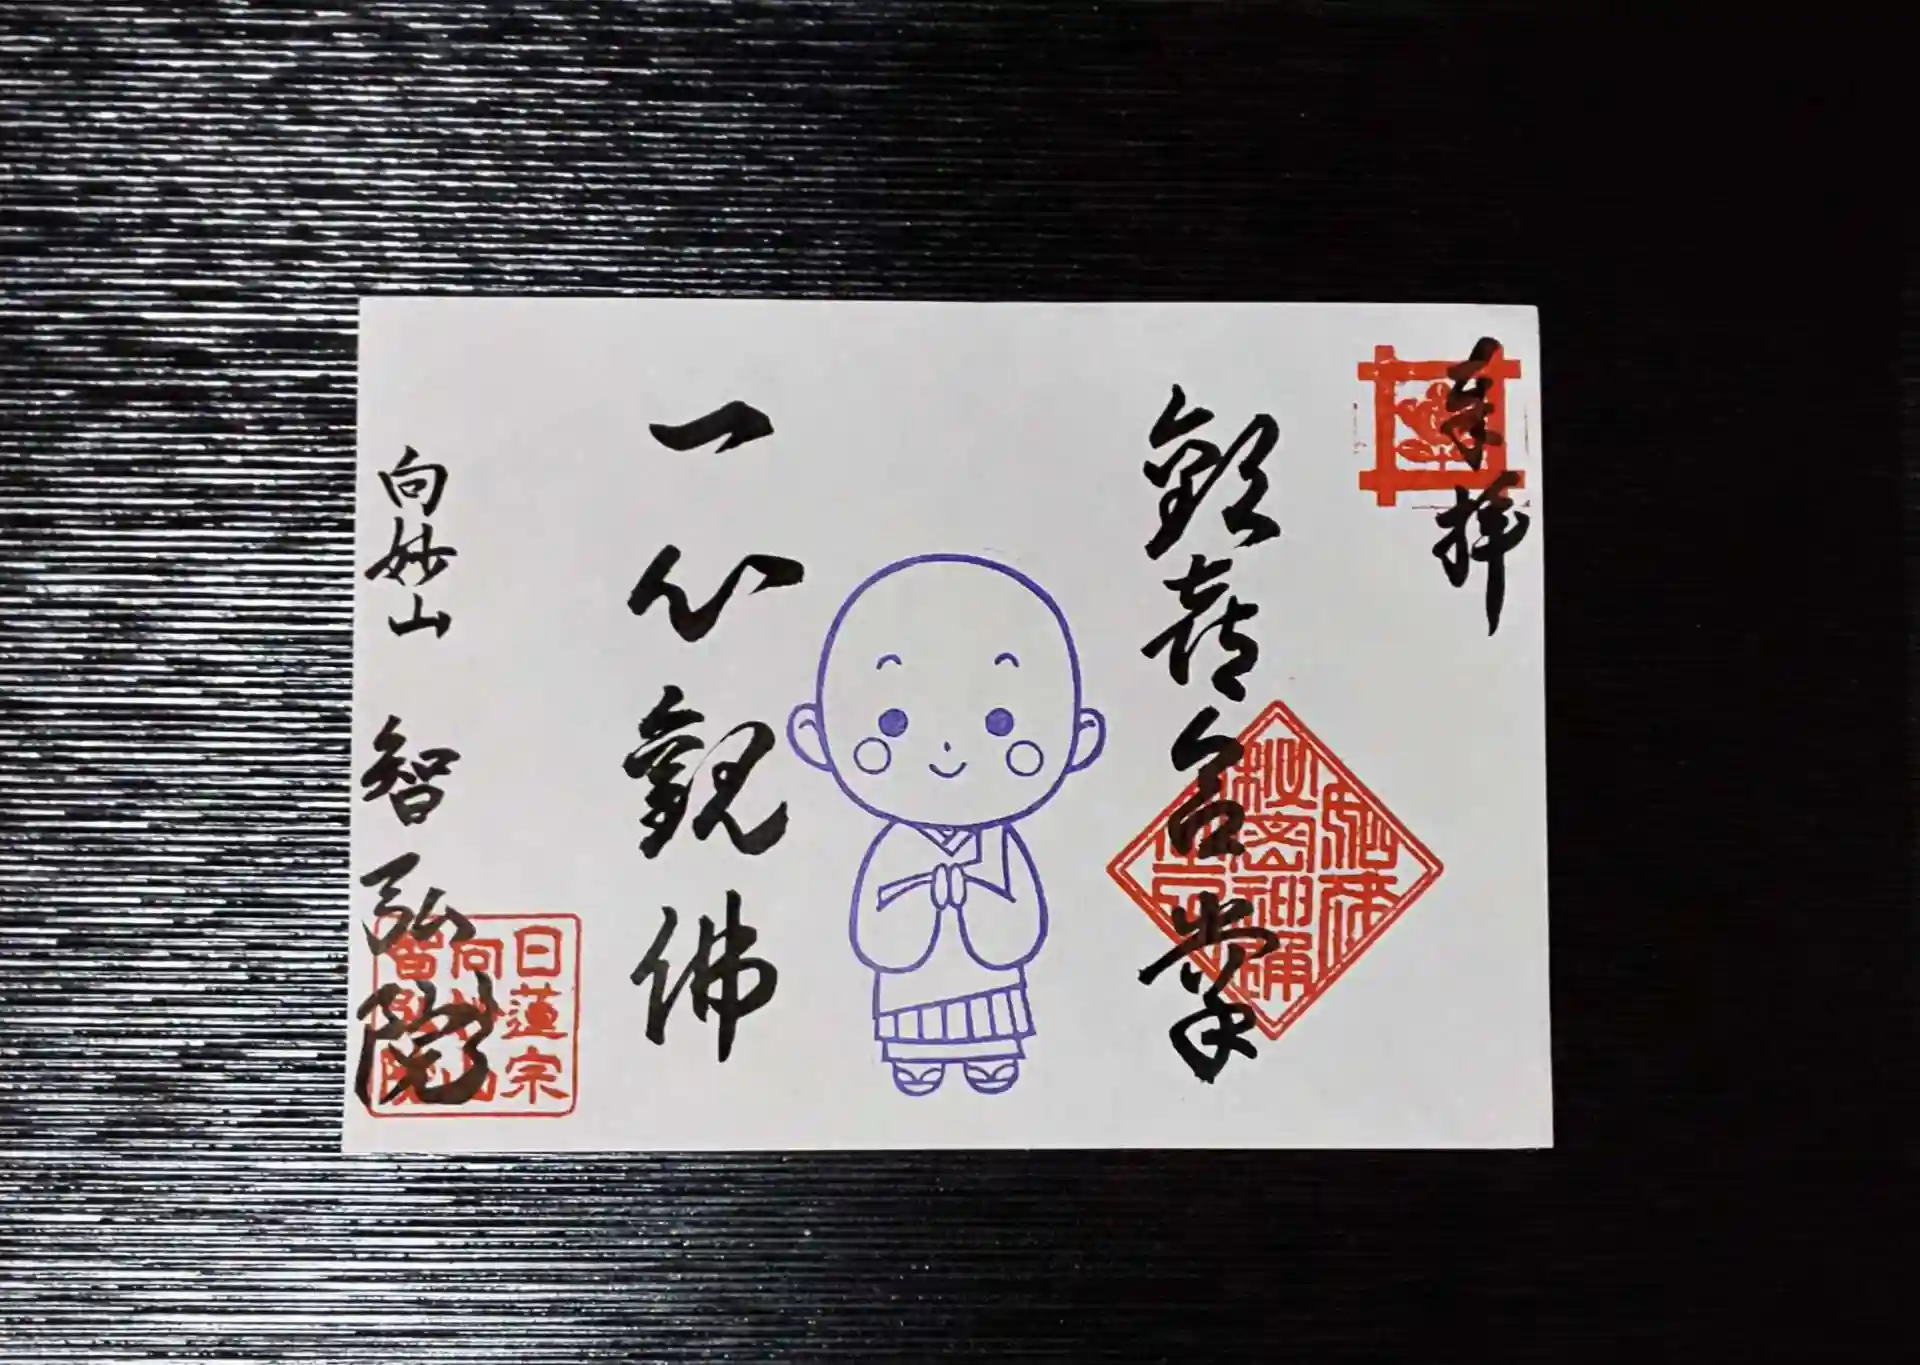 奉拝
歡喜合掌
一心觀佛
向妙山 智弘院
日蓮宗
向妙山
智弘院